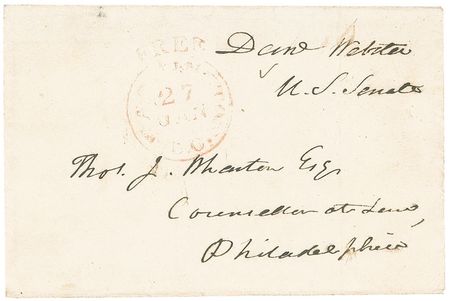 FREE
27
JAN
D.C.
Danl Webster
U.S. Senate
Thos. J. Wharton Esq
Counsellor at Law,
Philadelphia